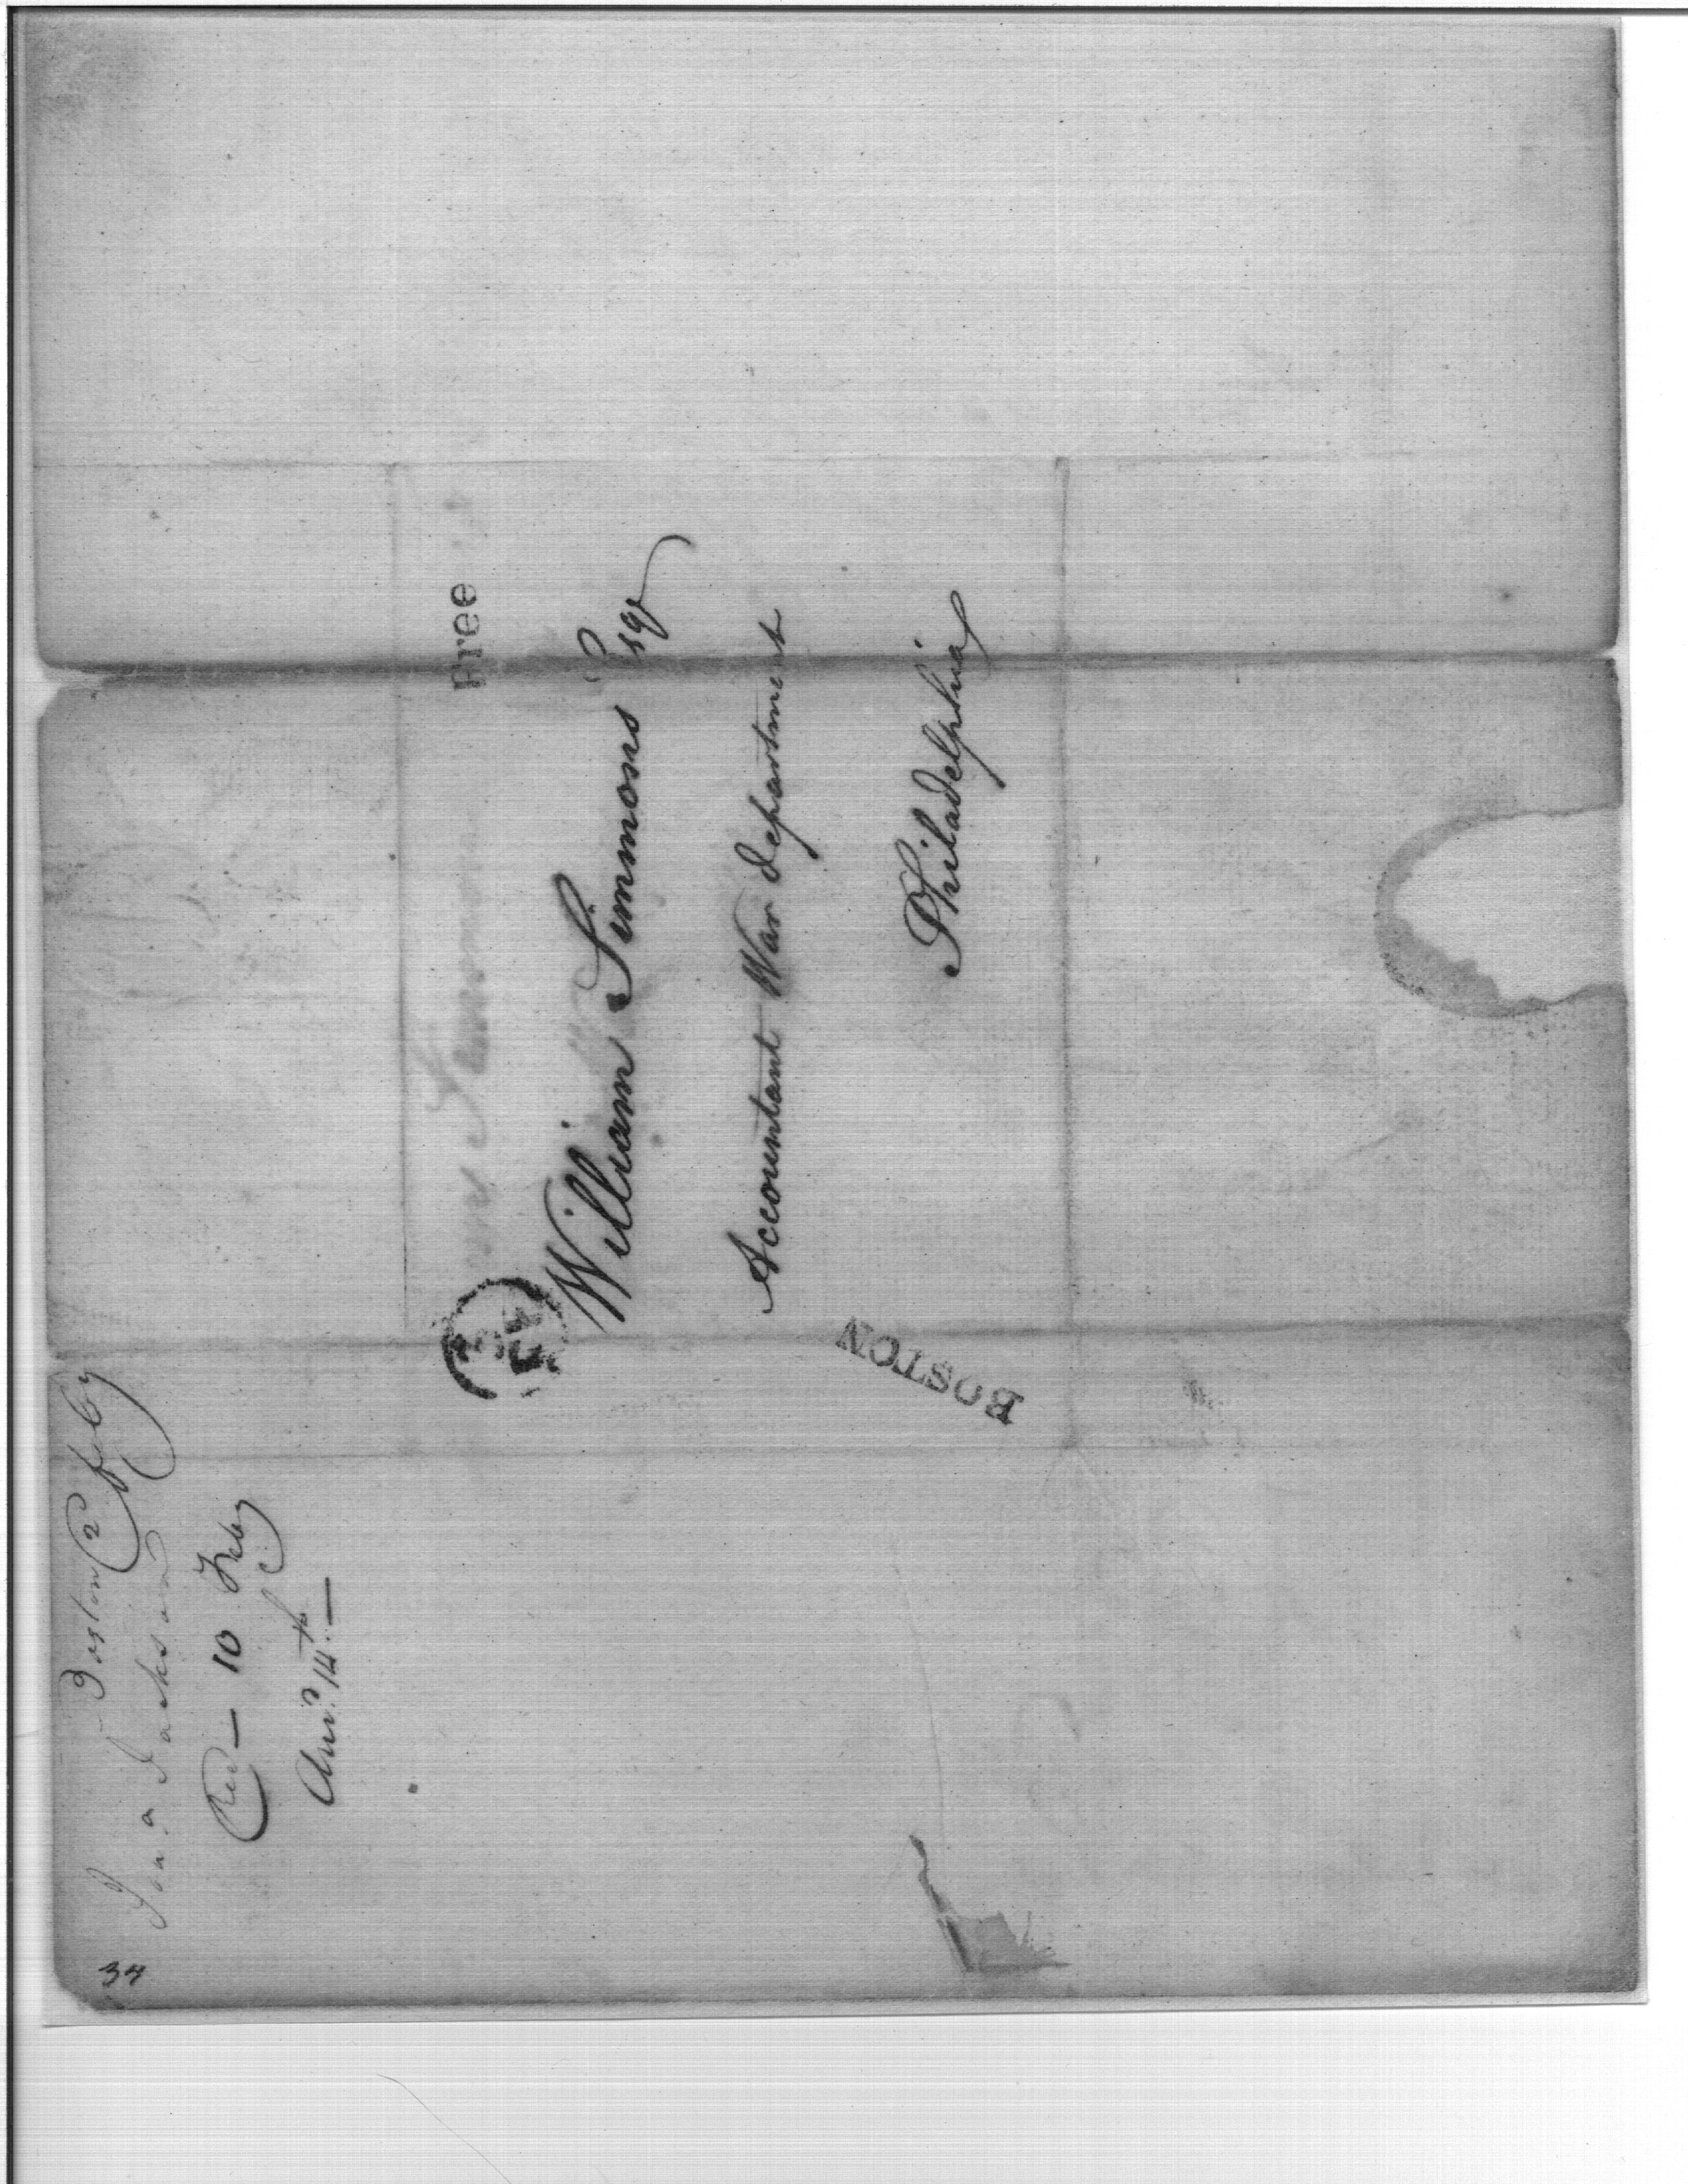 Boston 2 Feby
Jona Jackson
Recd — 10 Feby
Ansd. 14th. —
34
Free
William Simmons Esqr
Accountant War Department
Philadelphia
BOSTON